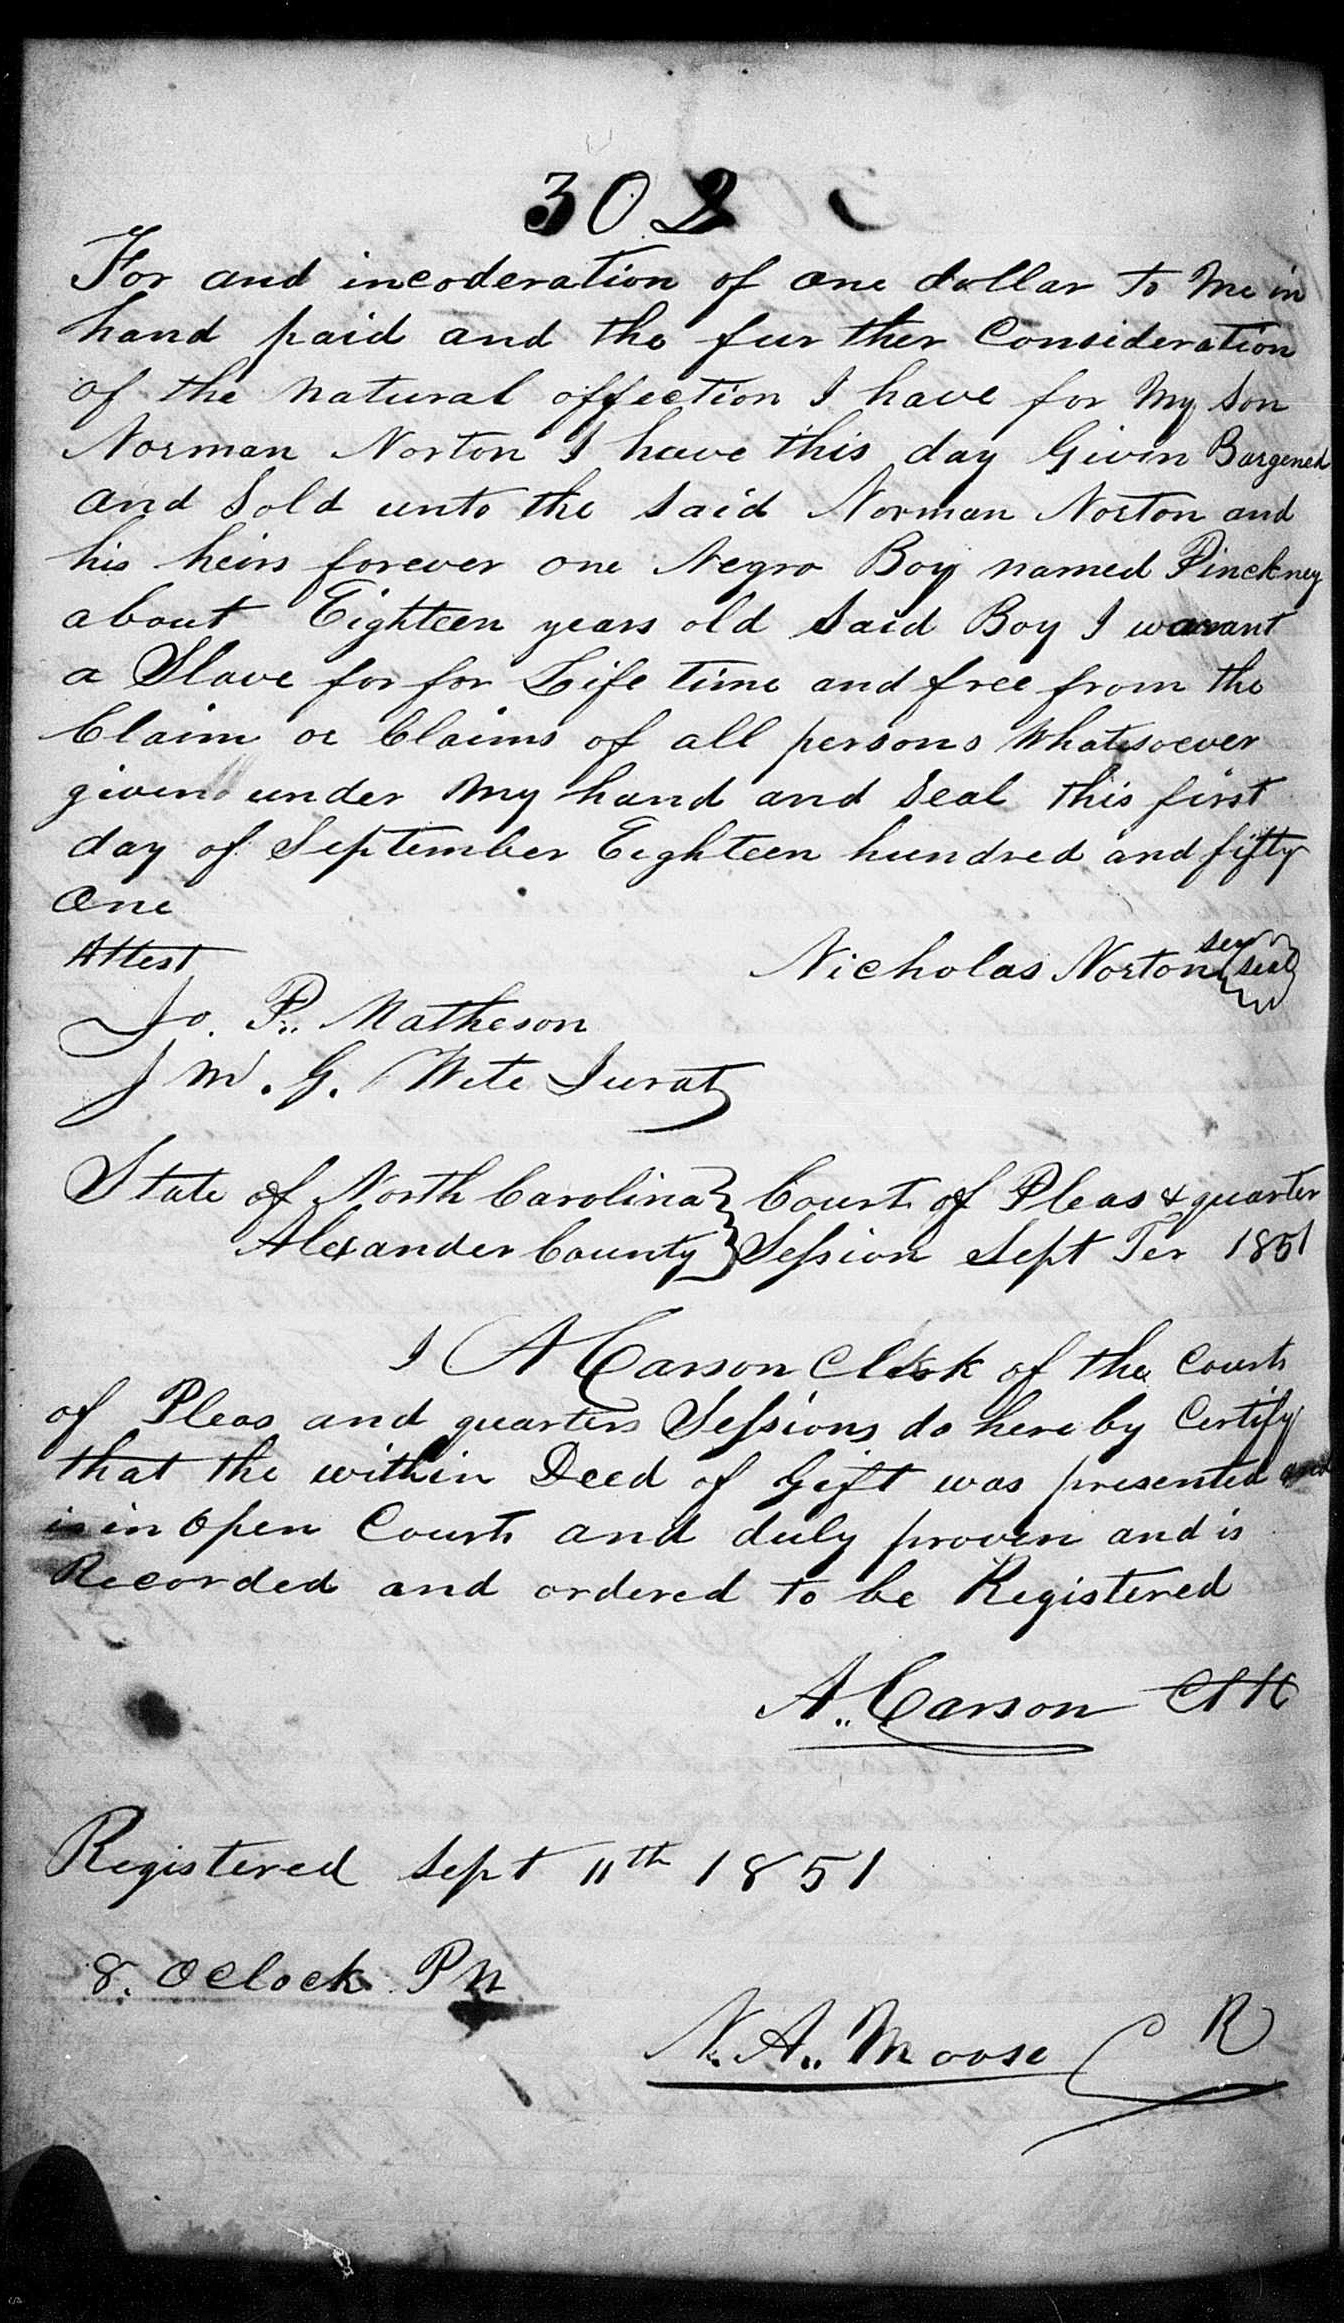 302
For and incoderation of one dollar to Me in
hand paid and the fur ther Consideration
of the natural affection I have for My Son
Norman Norton I have this day Given Bargened
and Sold unto the said Norman Norton and
his heirs forever one Negro Boy named Pinckney
about Eighteen years old Said Boy I warant
a Slave for for Life time and free from the
Claim or Claims of all persons Whatsoever
given under My hand and Seal this first
day of September Eighteen hundred and fifty
One
Attest
Nicholas Norton sen seal
Jo. P. Matheson
J M. G. Wite Jurat
State of North Carolina } Court of Pleas & quarter
Alexander County } Session Sept Ter 1851
I A Carson Clerk of the Courts
of Pleas and quarters Sessions do here by Certify
that the within Deed of Gift was presented and
is in open Courts and duly proven and is
Recorded and ordered to be Registered
A. Carson Clk
Registered Sept 11th 1851
8. Oclock PM
N. A. Moose R